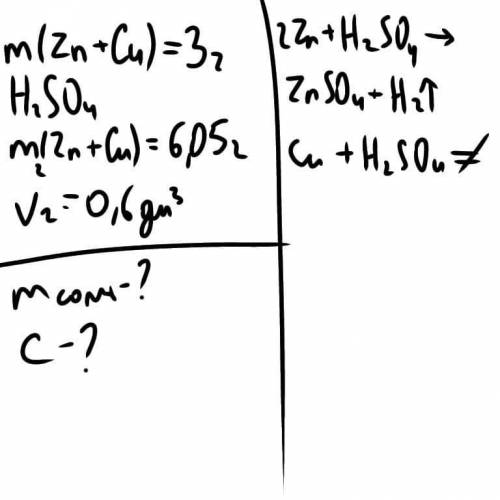 m(Zn+Cu)=3г
H₂SO₄
m₂(Zn+Cu)=6,05г
V₂=0,6 дм³
m соли-?
C-?
2Zn+H₂SO₄→
ZnSO₄+H₂↑
Cu+H₂SO₄≠